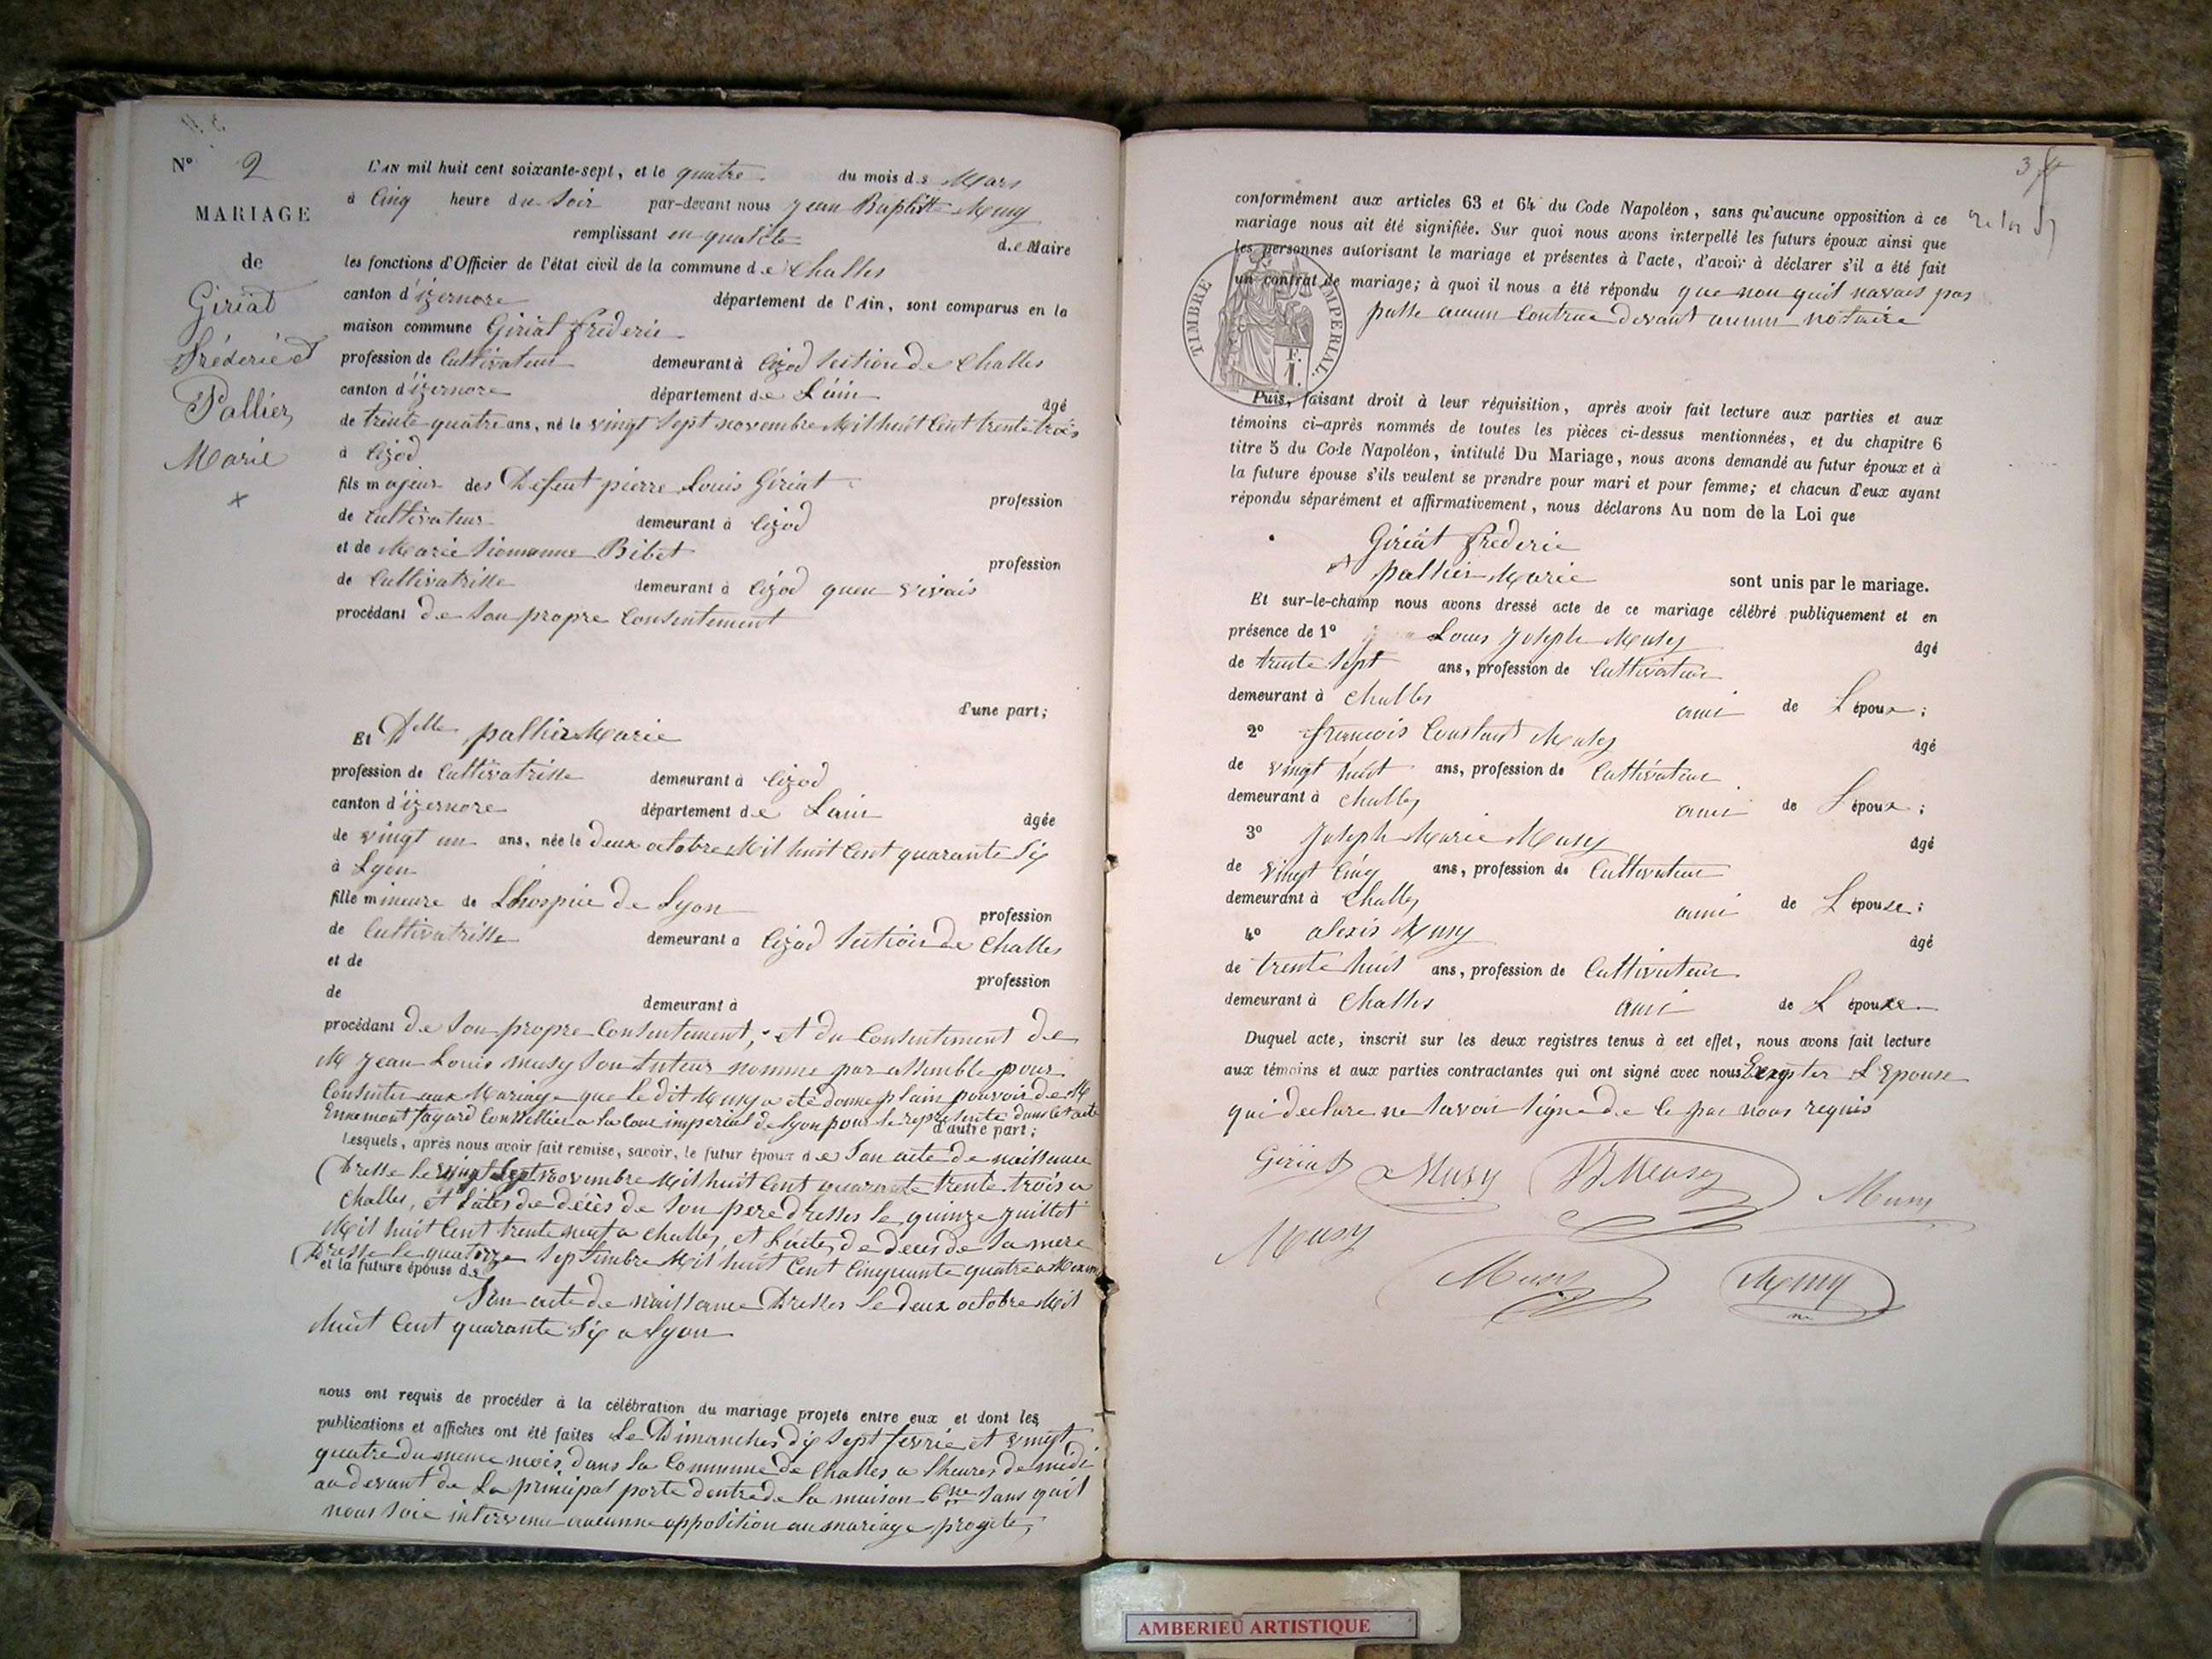 Nº 2
MARIAGE
de
Giriat
Fréderic et
Pallier
Marie
L'AN mil huit cent soixante-sept, et le quatre du mois de Mars
à Cinq heure du Soir par-devant nous Jean Baptiste Musy
remplissant en qualité de Maire
les fonctions d'Officier de l'état civil de la commune de Challes
canton d'izernore département de l'Ain, sont comparus en la
maison commune Giriat frederic
profession de Cultivateur demeurant à Cizod Section de Challes
canton d'izernore département de L'ain
âgé
de trente quatre ans, né le vingt Sept novembre Mil huit Cent trente trois
à Cizod
fils majeur des Defent pierre Louis Giriat
profession
de Cultivateur demeurant à Cizod
et de Marie Bibet
profession
de Cultivatrisse demeurant à Cizod quen vivais
procédant de Son propre Consentement
d'une part;
Et Delle pallier Marie
profession de Cultivatrisse demeurant à Cizod
canton d'izernore département de Lain
âgée
de vingt un ans, née le deux octobre Mil huit Cent quarante Six
à Lyon
fille mineure de Lhospice de Lyon
profession
de Cultivatrisse demeurant a Cizod Section de Challes
et de
profession
de demeurant à
procédant de Son propre Consentement, et du Consentement de
M Jean Louis musy Son tuteur nomme par assemble pour
Consentir aux Mariage que Le dit Musy a été donne plain pouvoir de M
Ennemont fayard Conseillier a la Cour imperial de Lyon pour le representé dans Cet acte
d'autre part;
Lesquels, après nous avoir fait remise, savoir, le futur époux de Son acte de naissance
Dresse le vingt Sept novembre Mil huit Cent quarante trente trois a
Challes, et L'actes de décès de Son pere dresses le quinze juillet
Mil huit Cent trente neuf a challes, et L'actes de deces de Sa mere
Dresse le quatorze Septembre Mil huit Cent Cinquante quatre a
et la future épouse de
Son acte de naissance Dresses le deux octobre Mil
huit Cent quarante Six a Lyon
nous ont requis de procéder à la célébration du mariage projeté entre eux et dont les
publications et affiches ont été faites Le Dimanches dix Sept fevrie et vingt
quatre du meme mois dans la Commune de Challes a lheures de midi
au devant de La principal porte dentre de la maison Cne Sans qu'il
nous Soie intervenu aucunne opposition au mariage projete,
3
conformément aux articles 63 et 64 du Code Napoléon, sans qu'aucune opposition à ce
mariage nous ait été signifiée. Sur quoi nous avons interpellé les futurs époux ainsi que
les personnes autorisant le mariage et présentes à l'acte, d'avoir à déclarer s'il a été fait
un contrat de mariage; à quoi il nous a été répondu que non quil navais pas
passe aucun Contrac devant aucun notaire
TIMBRE IMPERIAL.
Puis, faisant droit à leur réquisition, après avoir fait lecture aux parties et aux
témoins ci-après nommés de toutes les pièces ci-dessus mentionnées, et du chapitre 6
titre 5 du Code Napoléon, intitulé Du Mariage, nous avons demandé au futur époux et à
la future épouse s'ils veulent se prendre pour mari et pour femme; et chacun d'eux ayant
répondu séparément et affirmativement, nous déclarons Au nom de la Loi que
Giriat frederic
et pallier Marie sont unis par le mariage.
Et sur-le-champ nous avons dressé acte de ce mariage célébré publiquement et en
présence de 1º Louis Joseph Musy
âgé
de trente Sept ans, profession de Cultivateur
demeurant à Challes ami de L époux;
2º françois Constant Musy
âgé
de vingt huit ans, profession de Cultivateur
demeurant à Challes ami de L époux;
3º Joseph Marie Musy
âgé
de vingt Cinq ans, profession de Cultivateur
demeurant à Challes ami de L épouse;
4º alexis Musy
âgé
de trente huit ans, profession de Cultivateur
demeurant à Challes ami de L épouse
Duquel acte, inscrit sur les deux registres tenus à cet effet, nous avons fait lecture
aux témoins et aux parties contractantes qui ont signé avec nous Excepter L'Epouse
qui declare ne Savoir Signe de Ce par nous requis
Giriat Musy JB Musy Musy
Musy
Musy Musy
AMBERIEU ARTISTIQUE